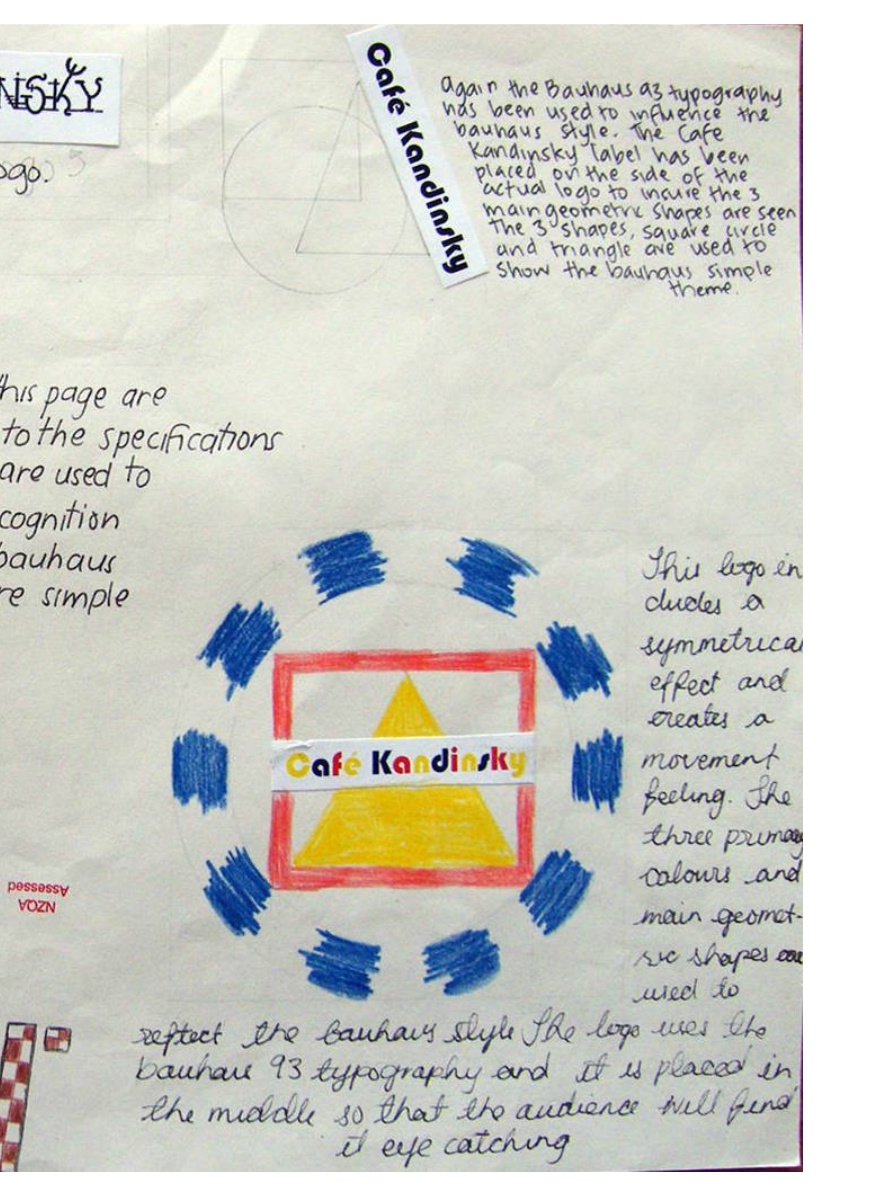 NSKY
ogo.
Café Kandinsky
Again the Bauhaus 93 typography
has been used to influence the
bauhaus style. The Cafe
Kandinsky label has been
placed on the side of the
actual logo to incure the 3
main geometric shapes are seen
The 3 shapes, square circle
and triangle are used to
show the bauhaus simple
theme.
his page are
to the specifications
are used to
cognition
bauhaus
re simple
Café Kandinsky
This logo in
cludes a
symmetrical
effect and
creates a
movement
feeling. The
three primary
colours and
main geomet-
ric shapes are
used to
reflect the bauhaus style The logo uses the
bauhaus 93 typography and it is placed in
the middle so that the audience will find
it eye catching
NZQA
Assessed